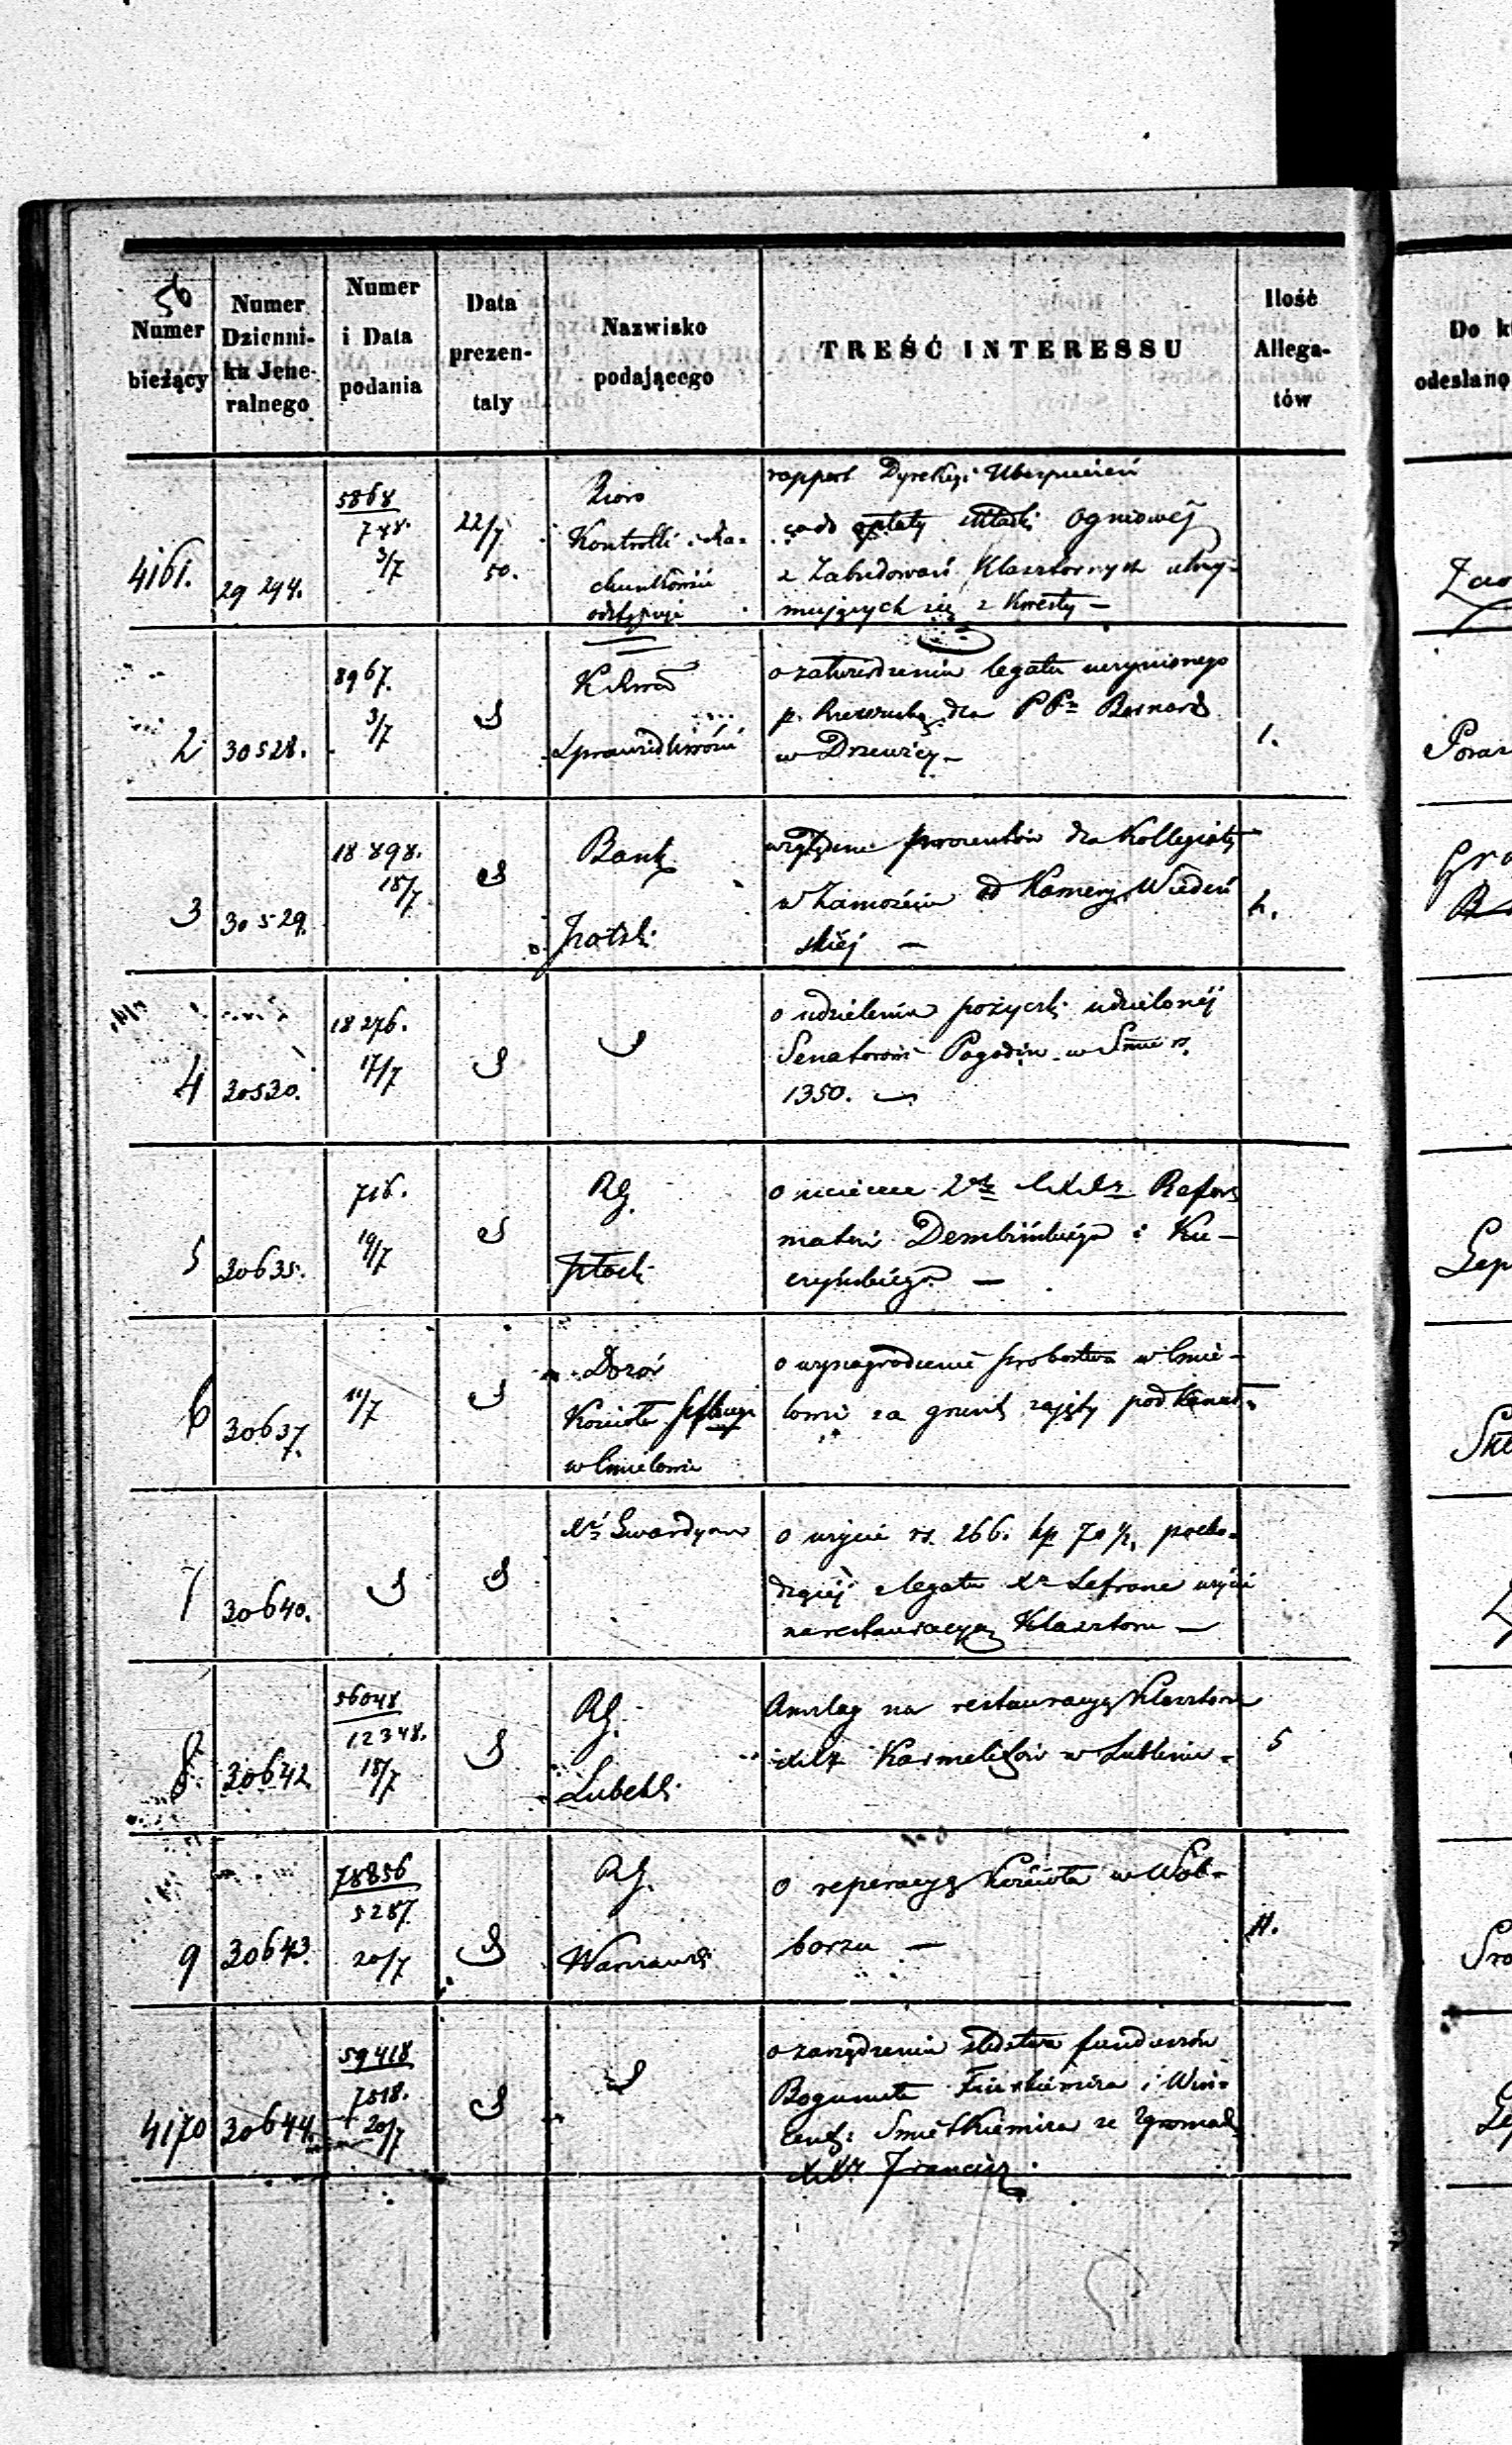 56
Numer bieżący
Numer Dzienni-ka Jene-ralnego
Numer i Data podania
Data prezen-taty
Nazwisko podającego
TREŚĆ INTERESSU
Ilość Allega-tów
Do k
odesłano
4161.
29 294.
5868
748.
3/7
22/7
50.
Bióro
Kontrolli i Ra-
chunkowści
odstępuje
rapport Dyrekcyi Ubezpieczeń
opłaty składki Ogniowéj
z Zabudowań Klasztornych utrzy-
mujących się z Kwesty —
2
30528.
8967.
3/7
Sprawiedliwości
o zatwierdzenie legatu uczynionego
dla PP. Bernard
w Drzewicy —
1.
3
30529.
18898.
18/7
Bank
Polski
względem procentów dla Kollegiaty
w Zamościu od Kamery Wiedeń
skiéj —
2.
4
30530.
18276.
17/7
o udzielenie pożyczki udzielonéj
Senatorowi Pogodin w Sumie rs.
1350.
5
30635.
716.
19/7
RG.
Płocki
o ucieczce 2ch XX. Refor
matów Dembińskiego i Ku-
czyńskiego —
6
30637.
11/7
Dozór
Kościoła
w Cmielowie
o wynagrodzenie probostwa w Cmie-
lowie za grunt zajęty pod
7
30640.
X. Gwardyan
o użycie rs. 266. kp 70 1/2, pocho-
dzącéj z legatu X. Lefrane użycie
na restauracyą Klasztoru —
8
30642
56048
12348.
18/7
RG.
Lubelski
Anszlag na restauracyą Klasztoru
XX. Karmelitów w Lublinie -
5
9
30643.
78856
5287.
20/7
RG.
Warszawski
o reperacyą Kościoła w Wol-
borzu —
11.
4170
30644.
59418
7518.
20/7
o zarządzenie śledztwa funduszów
Bogumiła i Win-
ze Zgromadz.
XX. Francisz.